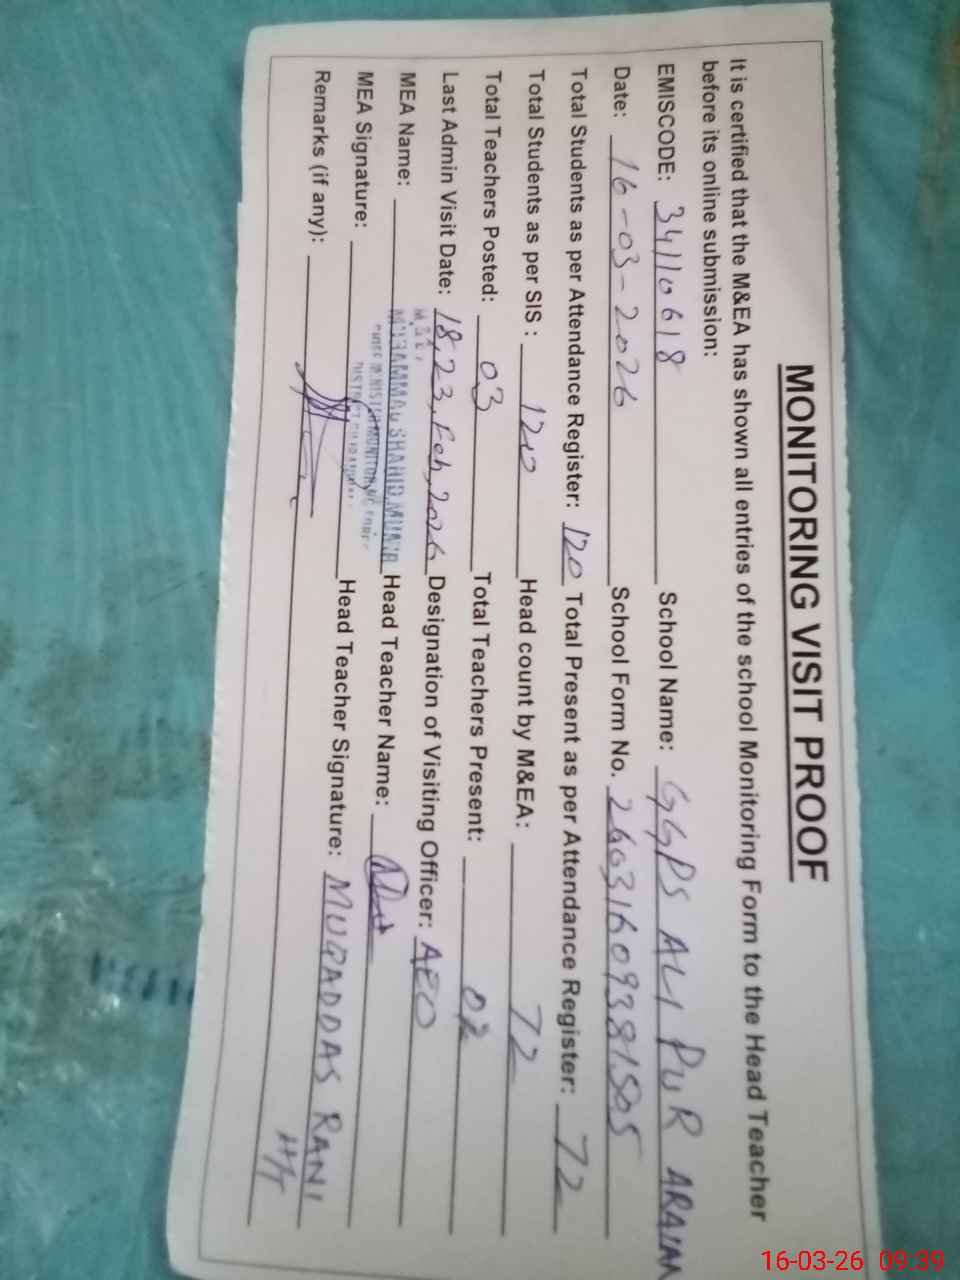 MONITORING VISIT PROOF
It is certified that the M&EA has shown all entries of the school Monitoring Form to the Head Teacher
before its online submission:
EMISCODE: 34110618 School Name: GGPS ALI PUR ARAIAN
Date: 16-03-2026 School Form No. 26031609381505
Total Students as per Attendance Register: 120 Total Present as per Attendance Register: 72
Total Students as per SIS : 120 Head count by M&EA: 72
Total Teachers Posted: 03 Total Teachers Present: 02
Last Admin Visit Date: 18,23,Feb,2026 Designation of Visiting Officer: AEO
MEA Name: MUHAMMAD SHAHID MUNIR Head Teacher Name:
MEA Signature: CHIEF MINISTER MONITORING FORCE Head Teacher Signature: MUQADDAS RANI
Remarks (if any): HT
16-03-26 09:39